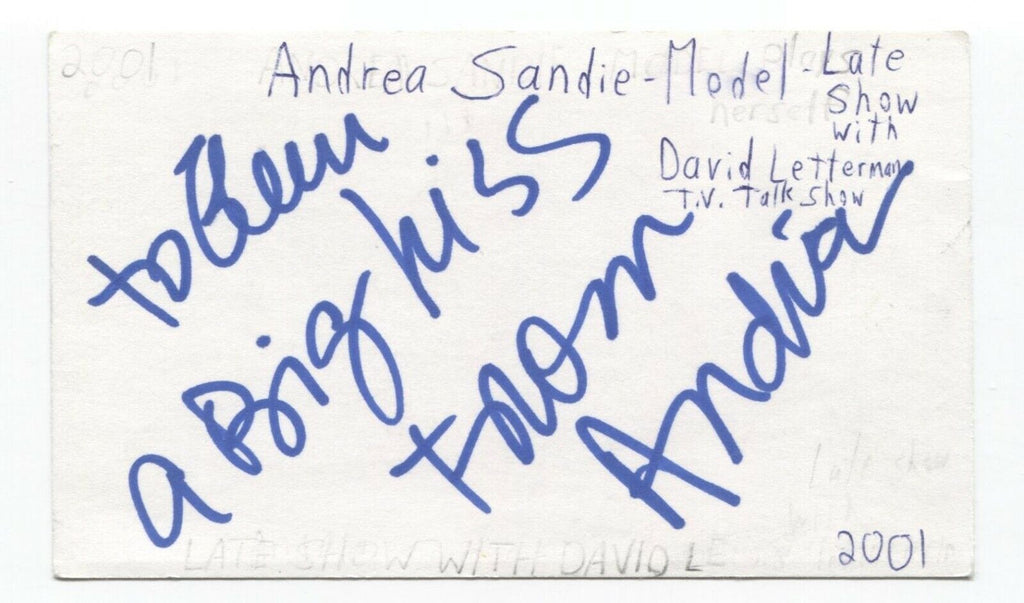 2001
Andrea Sandie-Model-Late
Show
with
herself
David Letterman
T.V. Talk Show
to Ben
a Big kiss
from
Andria
Late show
LATE SHOW WITH DAVID LE
2001